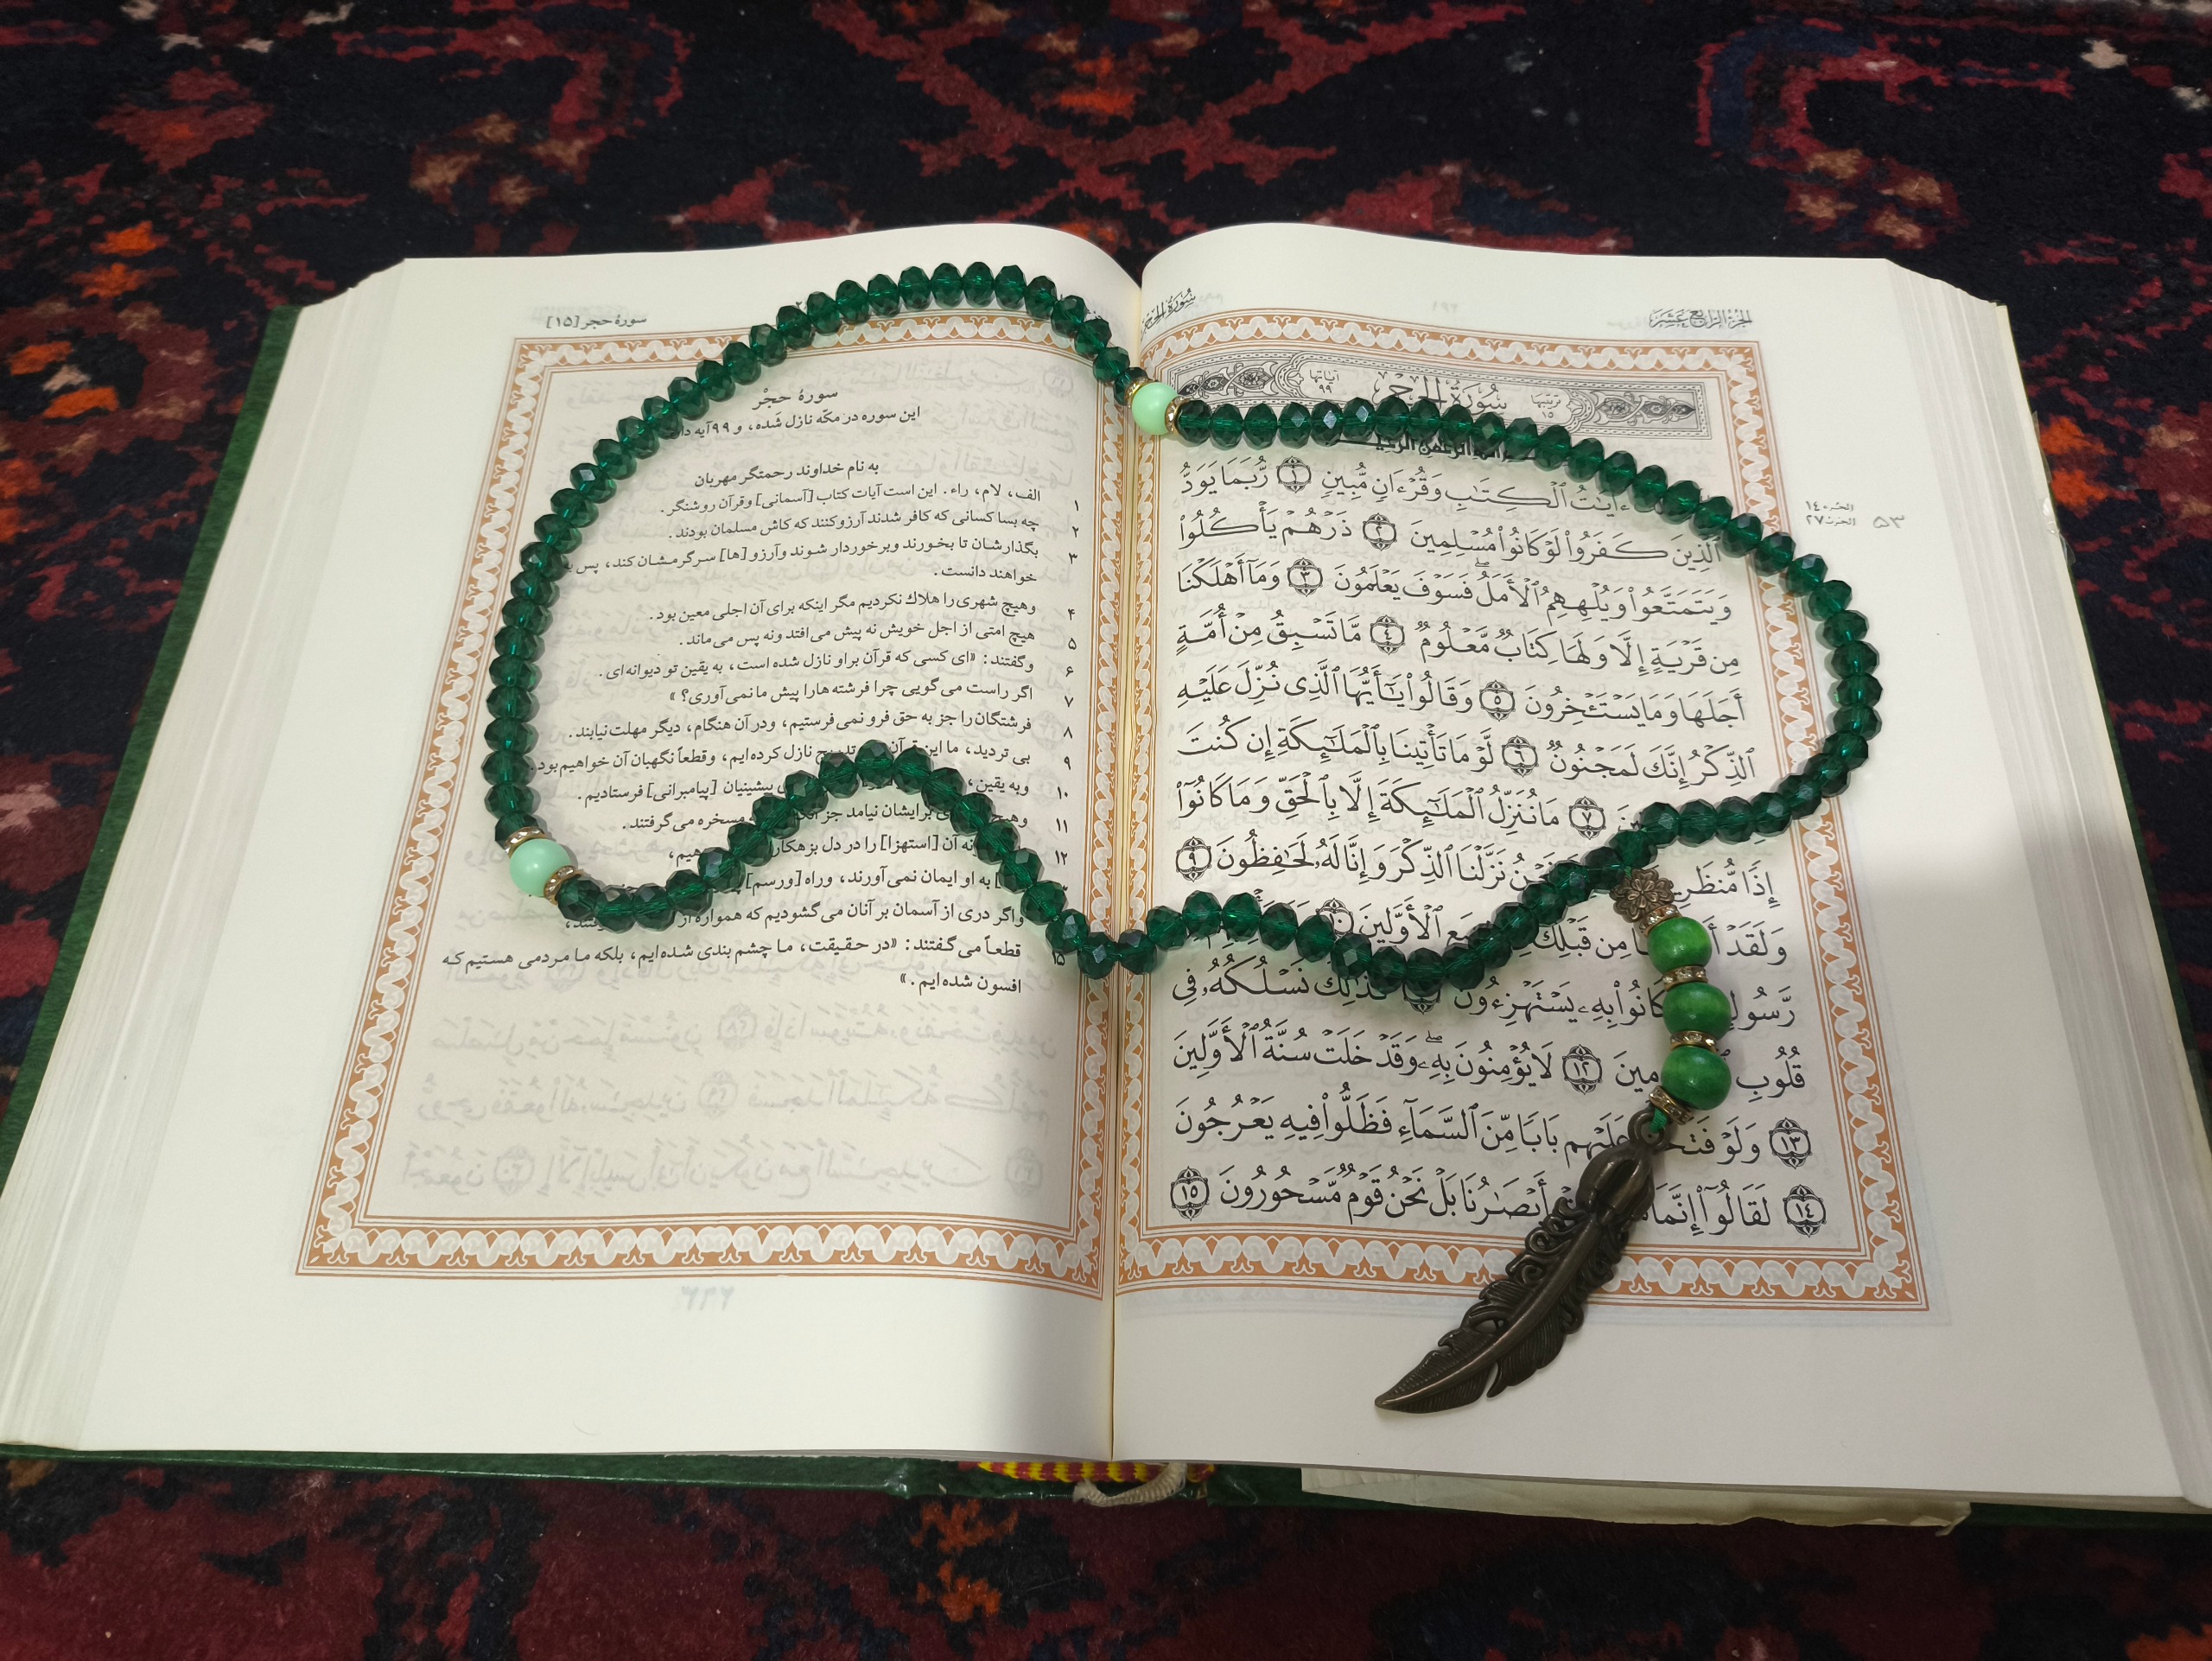 الجزء الرابع عشر
سورة الحجر
سُورَةُ الحِجر
ترتيبها
١٥
آياتها
٩٩
ءَايَٰتُ ٱلۡكِتَٰبِ وَقُرۡءَانٖ مُّبِينٖ ١ رُّبَمَا يَوَدُّ
ٱلَّذِينَ كَفَرُواْ لَوۡ كَانُواْ مُسۡلِمِينَ ٢ ذَرۡهُمۡ يَأۡكُلُواْ
وَيَتَمَتَّعُواْ وَيُلۡهِهِمُ ٱلۡأَمَلُۖ فَسَوۡفَ يَعۡلَمُونَ ٣ وَمَآ أَهۡلَكۡنَا
مِن قَرۡيَةٍ إِلَّا وَلَهَا كِتَابٞ مَّعۡلُومٞ ٤ مَّا تَسۡبِقُ مِنۡ أُمَّةٍ
أَجَلَهَا وَمَا يَسۡتَـٔۡخِرُونَ ٥ وَقَالُواْ يَٰٓأَيُّهَا ٱلَّذِي نُزِّلَ عَلَيۡهِ
ٱلذِّكۡرُ إِنَّكَ لَمَجۡنُونٞ ٦ لَّوۡ مَا تَأۡتِينَا بِٱلۡمَلَٰٓئِكَةِ إِن كُنتَ
٧ مَا نُنَزِّلُ ٱلۡمَلَٰٓئِكَةَ إِلَّا بِٱلۡحَقِّ وَمَا كَانُوٓاْ
إِذٗا مُّنظَرِ نَزَّلۡنَا ٱلذِّكۡرَ وَإِنَّا لَهُۥ لَحَٰفِظُونَ ٩
وَلَقَدۡ مِن قَبۡلِكَ ٱلۡأَوَّلِينَ
رَّسُولٍ كَانُواْ بِهِۦ يَسۡتَهۡزِءُونَ كَذَٰلِكَ نَسۡلُكُهُۥ فِي
قُلُوبِ ١٢ لَا يُؤۡمِنُونَ بِهِۦ وَقَدۡ خَلَتۡ سُنَّةُ ٱلۡأَوَّلِينَ
١٣ وَلَوۡ عَلَيۡهِم بَابٗا مِّنَ ٱلسَّمَآءِ فَظَلُّواْ فِيهِ يَعۡرُجُونَ
١٤ لَقَالُوٓاْ إِنَّمَا أَبۡصَٰرُنَا بَلۡ نَحۡنُ قَوۡمٞ مَّسۡحُورُونَ ١٥
الجزء ١٤
الحزب ٢٧
سورهٔ حجر [١٥]
سورهٔ حجْر
این سوره در مکّه نازل شده، و ٩٩ آیه
به نام خداوند رحمتگر مهربان
١ الف، لام، راء. این است آیات کتاب [آسمانی] وقرآن روشنگر.
٢ چه بسا کسانی که کافر شدند آرزو کنند که کاش مسلمان بودند.
٣ بگذارشان تا بخورند وبرخوردار شوند وآرزو [ها] سرگرمشان کند، پس
خواهند دانست.
۴ وهیچ شهری را هلاك نکردیم مگر اینکه برای آن اجلی معین بود.
۵ هیچ امتی از اجل خویش نه پیش می افتد ونه پس می ماند.
۶ وگفتند: «ای کسی که قرآن بر او نازل شده است، به یقین تو دیوانه ای.
٧ اگر راست می گویی چرا فرشته ها را پیش ما نمی آوری؟»
٨ فرشتگان را جز به حق فرو نمی فرستیم، ودر آن هنگام، دیگر مهلت نیابند.
٩ بی تردید، ما این تدریج نازل کرده ایم، وقطعاً نگهبان آن خواهیم بود.
١٠ وبه یقین، پیشینیان [پیامبرانی] فرستادیم.
١١ برایشان نیامد جز مسخره می گرفتند.
١٢ آن [استهزا] را در دل بزهکار
به او ایمان نمی آورند، وراه [ورسم]
واگر دری از آسمان بر آنان می گشودیم که همواره از
١۵ قطعاً می گفتند: «در حقیقت، ما چشم بندی شده ایم، بلکه ما مردمی هستیم که
افسون شده ایم.»